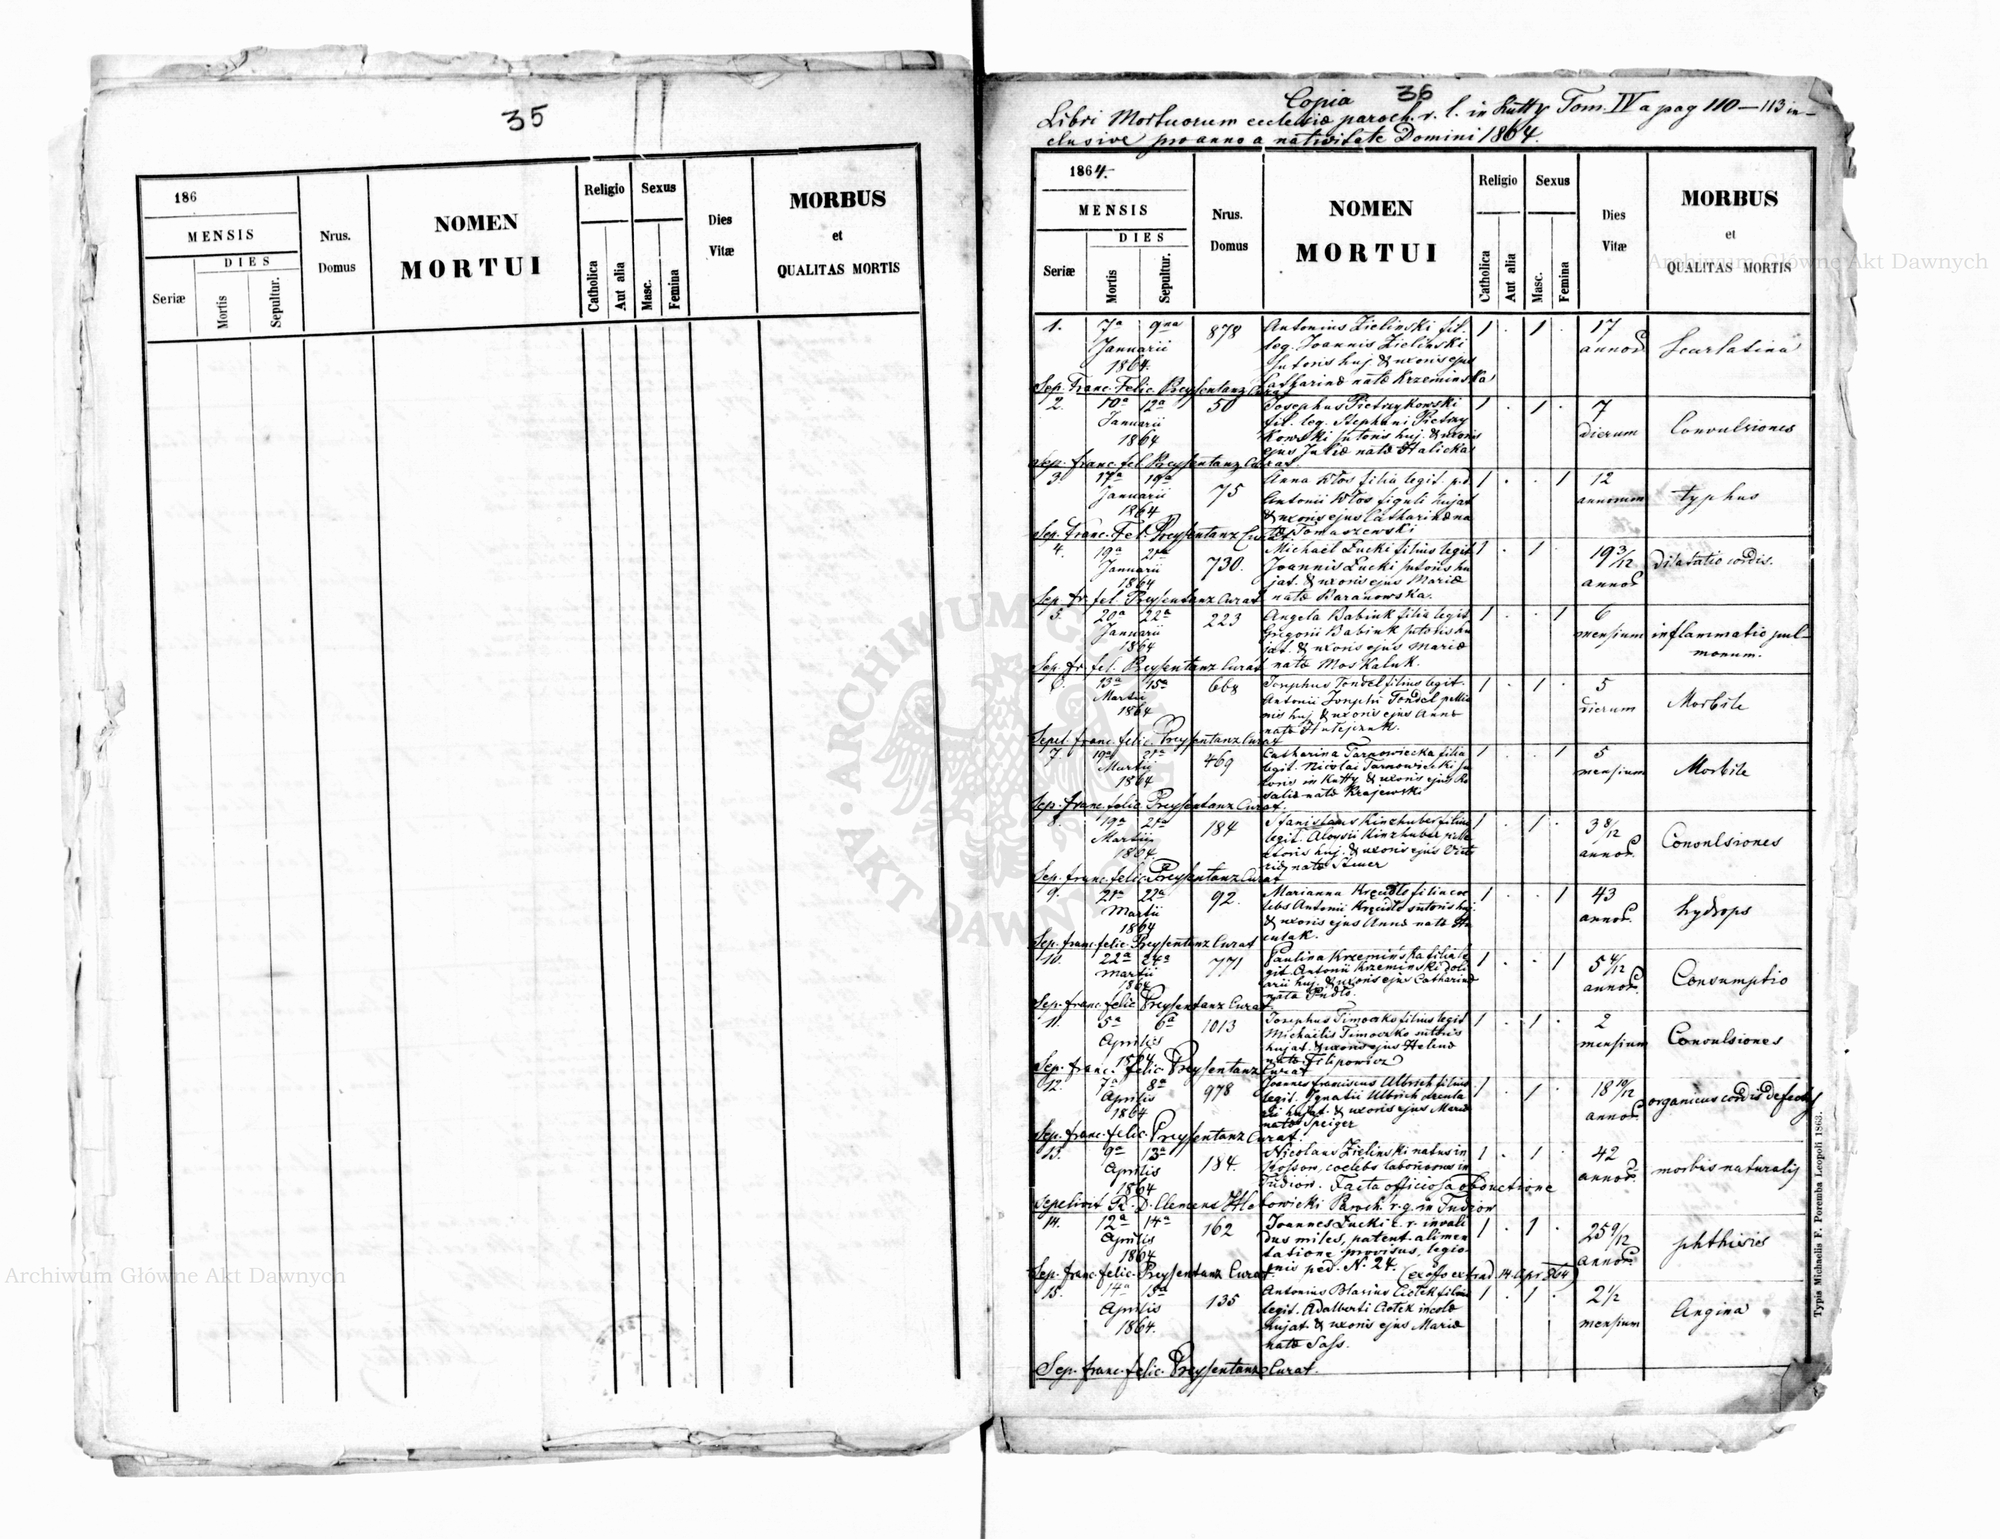 35
186
MENSIS
DIES
Seriæ
Mortis
Sepultur.
Nrus.
Domus
NOMEN
MORTUI
Religio
Catholica
Aut alia
Sexus
Masc.
Femina
Dies
Vitæ
MORBUS
et
QUALITAS MORTIS
36
Copia
Libri Mortuorum ecclesiæ paroch. r. l. in Kutty Tom. IV a pag 110—113 in-
clusive pro anno a nativitate Domini 1864.
1864.
MENSIS
DIES
Seriæ
Mortis
Sepultur.
Nrus.
Domus
NOMEN
MORTUI
Religio
Catholica
Aut alia
Sexus
Masc.
Femina
Dies
Vitæ
MORBUS
et
QUALITAS MORTIS
1. 7a 9na 878 Antonius Zielinski fil. 1 . 1 . 17
Januarii leg. Joannis Zielinski annor Scarlatina
1864. sutoris huj. & uxoris ejus
Sep. Franc. Felic. Preysentanz Curat Catharinæ natæ Krzeminska
2. 10a 12a 50 Josephus Pietrzykowski 1 . 1 . 7
Januarii fil. leg. Stephani Pietrzy dierum Convulsiones
1864 kowski sutoris huj. & uxoris
ejus Juliæ natæ Halicka
Sep. franc. fel. Preysentanz Curat.
3. 17a 19a 75 Anna Wlos filia legit. 1 . . 1 12
Januarii Antonii Wlos figuli hujat annorum typhus
1864 & uxoris ejus Catharinæ na
Sep. Franc. Fel. Preysentanz Curat tæ Tomaszewski
4. 19a 21a 730. Michaël Łucki filius legit 1 . 1 . 19 3/12 dilatatio cordis.
Januarii Joannis Łucki sutoris hu annor
1864 jat. & uxoris ejus Mariæ
Sep. fr. fel. Preysentanz Curat natæ Baranowska.
5. 20a 22a 223 Angela Babiuk filia legit 1 . . 1 6
Januarii Gregorii Babiuk sutoris hu mensium inflammatio pul-
1864 jat. & uxoris ejus Mariæ monum.
Sep. fr. fel. Preysentanz Curat natæ Moskaluk.
6. 13a 15a 668 Josephus Tondel filius legit. 1 . 1 . 5
Martii Antonii Josephi Tondel pellio dierum Morbile
1864 nis huj & uxoris ejus Annæ
natæ
Sepel. franc. felic. Preysentanz Curat
7. 19a 21a 469 Catharina Tarnowiecka filia 1 . . 1 5
Martii legit. Nicolai Tarnowiecki su mensium Morbile
1864 toris in Kutty & uxoris ejus Ro
Sep. franc. felic. Preysentanz Curat. saliæ natæ Krajewski
8. 19a 21a 184 Stanislaus Kinzhuber filius 1 . 1 . 3 8/12
Martii legit. Aloysii Kinzhuber annor. Convulsiones
1864. huj. & uxoris ejus Victo
riæ natæ
Sep. franc. felic. Preysentanz Curat
9. 21a 22a 92. Marianna Kreidlo filia coe 1 . . 1 43
Martii lebs Antonii Kreidlo sutoris huj. annor. hydrops
1864 & uxoris ejus Annæ natæ
Sep. franc. felic. Preysentanz Curat
10. 22a 24a 771 Paulina Krzemińska filia le 1 . . 1 5 4/12
Martii git. Antonii Krzemiński doli annor. Consumptio
1864 arii huj. & uxoris ejus Catharinæ
Sep. franc. felic Preysentanz Curat. nata Pudlo.
11. 5a 6a 1013 Josephus Timoczko filius legit 1 . 1 . 2
Aprilis Michaëlis Timoczko sutoris mensium Convulsiones
1864 hujat. & uxoris ejus Helenæ
natæ Filipowicz
Sep. franc. felic. Preysentanz Curat
12. 7a 8a 978 Joannes Franciscus Ulbrich filius 1 . 1 . 18 10/12
Aprilis legit. Ignatii Ulbrich annor organicus cordis defectus
1864 hujat. & uxoris ejus Mariæ
natæ Speiger
Sep. franc. felic. Preysentanz Curat.
13. 9a 13a 184. Nicolaus Zielinski natus in 1 . 1 . 42
Aprilis Kossow, coelebs laboriosus in annor. morbus naturalis
1864 Tudiow. Facta officiosa obductione
Sepelivit R. D. Clemens Paroch. r. g. in Tudiow
14. 12a 14a 162 Joannes Łucki c. r. invali 1 . 1 . 25 9/12
Aprilis dus miles, patent. alimen annor phthisis
1864 tatione provisus, legio-
nis ped. No 24. (ex offo extrad 14 Apr 864)
Sep. franc. felic. Preysentanz Curat.
15. 14a 15a 135 Antonius Blasius Ciołek filius 1 . 1 . 2 1/2
Aprilis legit. Adalberti Ciołek incolæ mensium Angina
1864. hujat. & uxoris ejus Mariæ
natæ Sass.
Sep. franc. felic. Preysentanz Curat.
Typis Michaelis F. Poremba Leopoli 1863.
Archiwum Główne Akt Dawnych
Archiwum Główne Akt Dawnych
ARCHIWUM GŁÓWNE AKT DAWNYCH